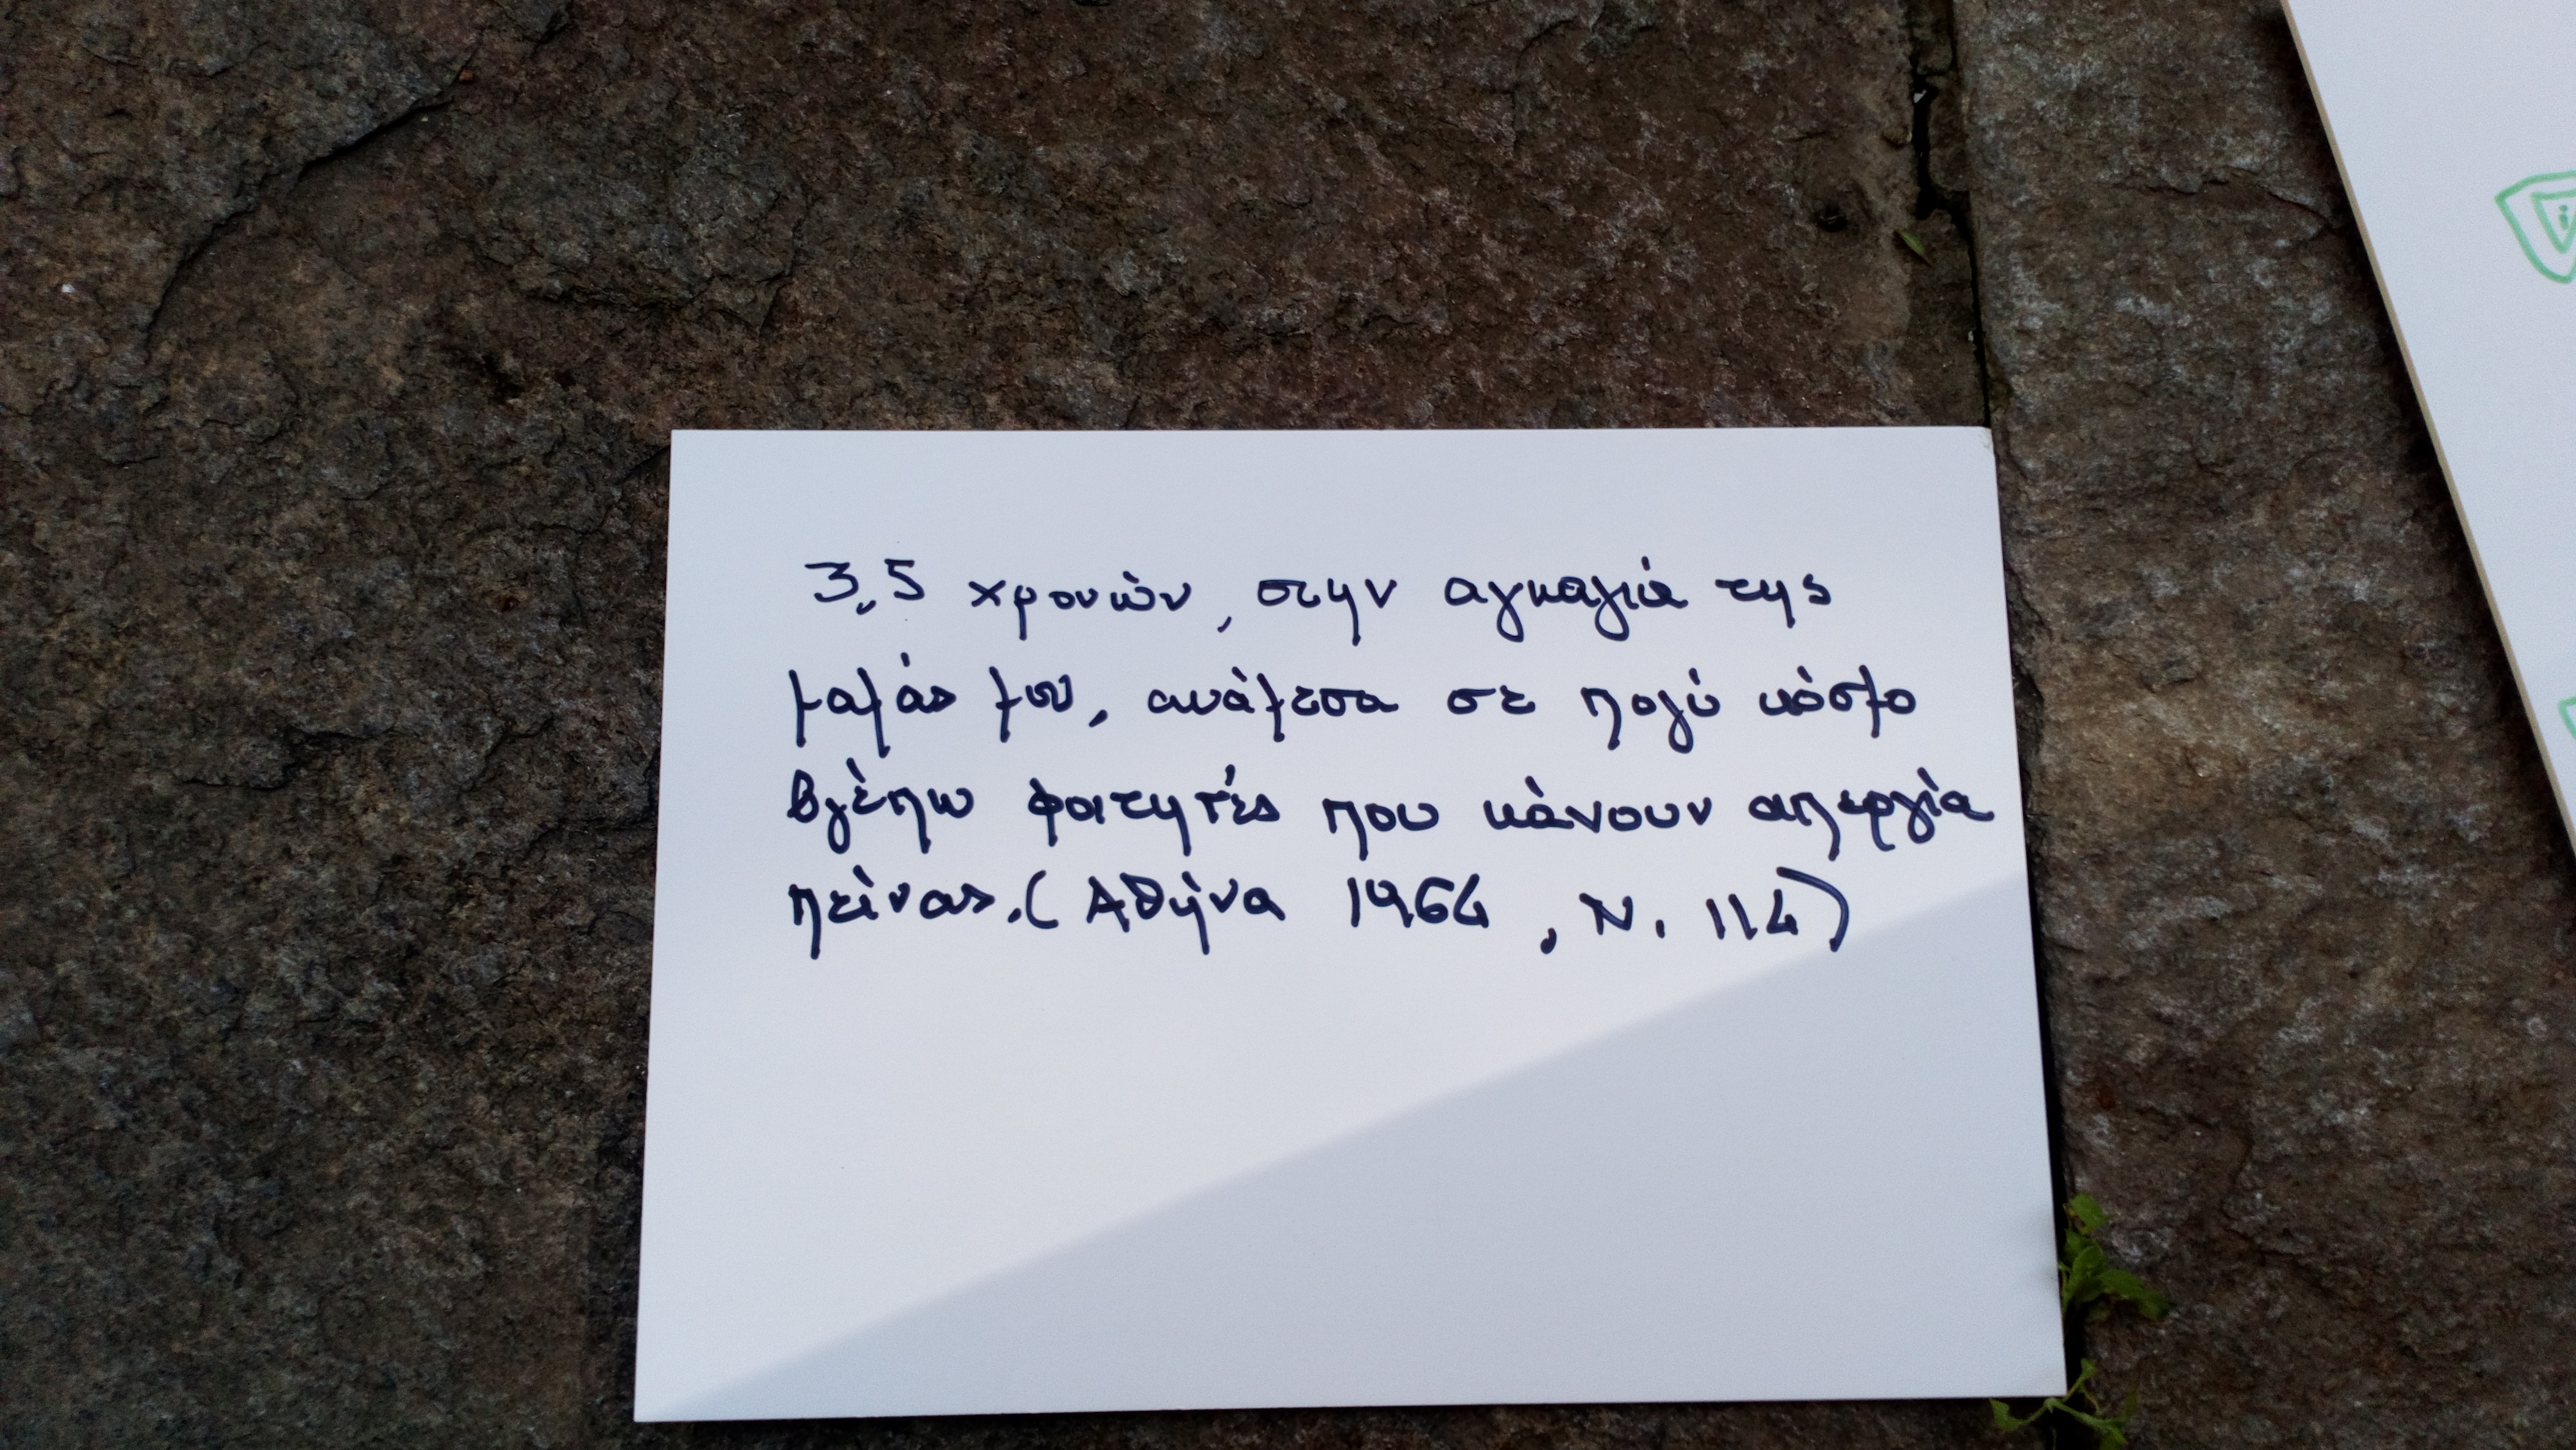 3,5 χρονών, στην αγκαλιά της
μαμάς μου, ανάμεσα σε πολύ κόσμο
βλέπω φοιτητές που κάνουν απεργία
πείνας. (Αθήνα 1964, Ν. 114)